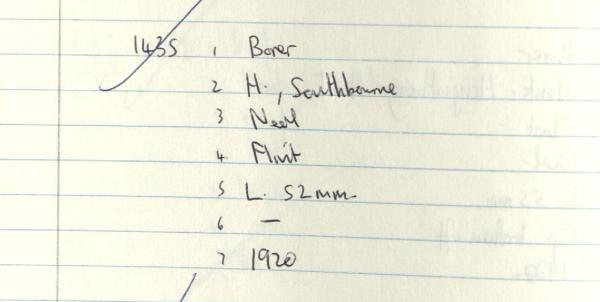 1435 1 Borer
2 H., Southbourne
3 Neol
4 Flint
5 L. 52mm
6 —
7 1920